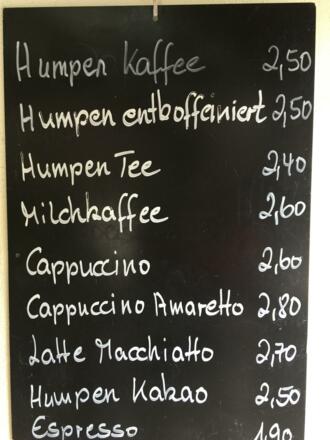 Humpen Kaffee 2,50
Humpen entkoffeiniert 2,50
Humpen Tee 2,40
Milchkaffee 2,60
Cappuccino 2,60
Cappuccino Amaretto 2,80
Latte Macchiatto 2,70
Humpen Kakao 2,50
Espresso 1,90